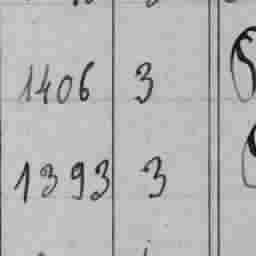 1406 3
1393 3